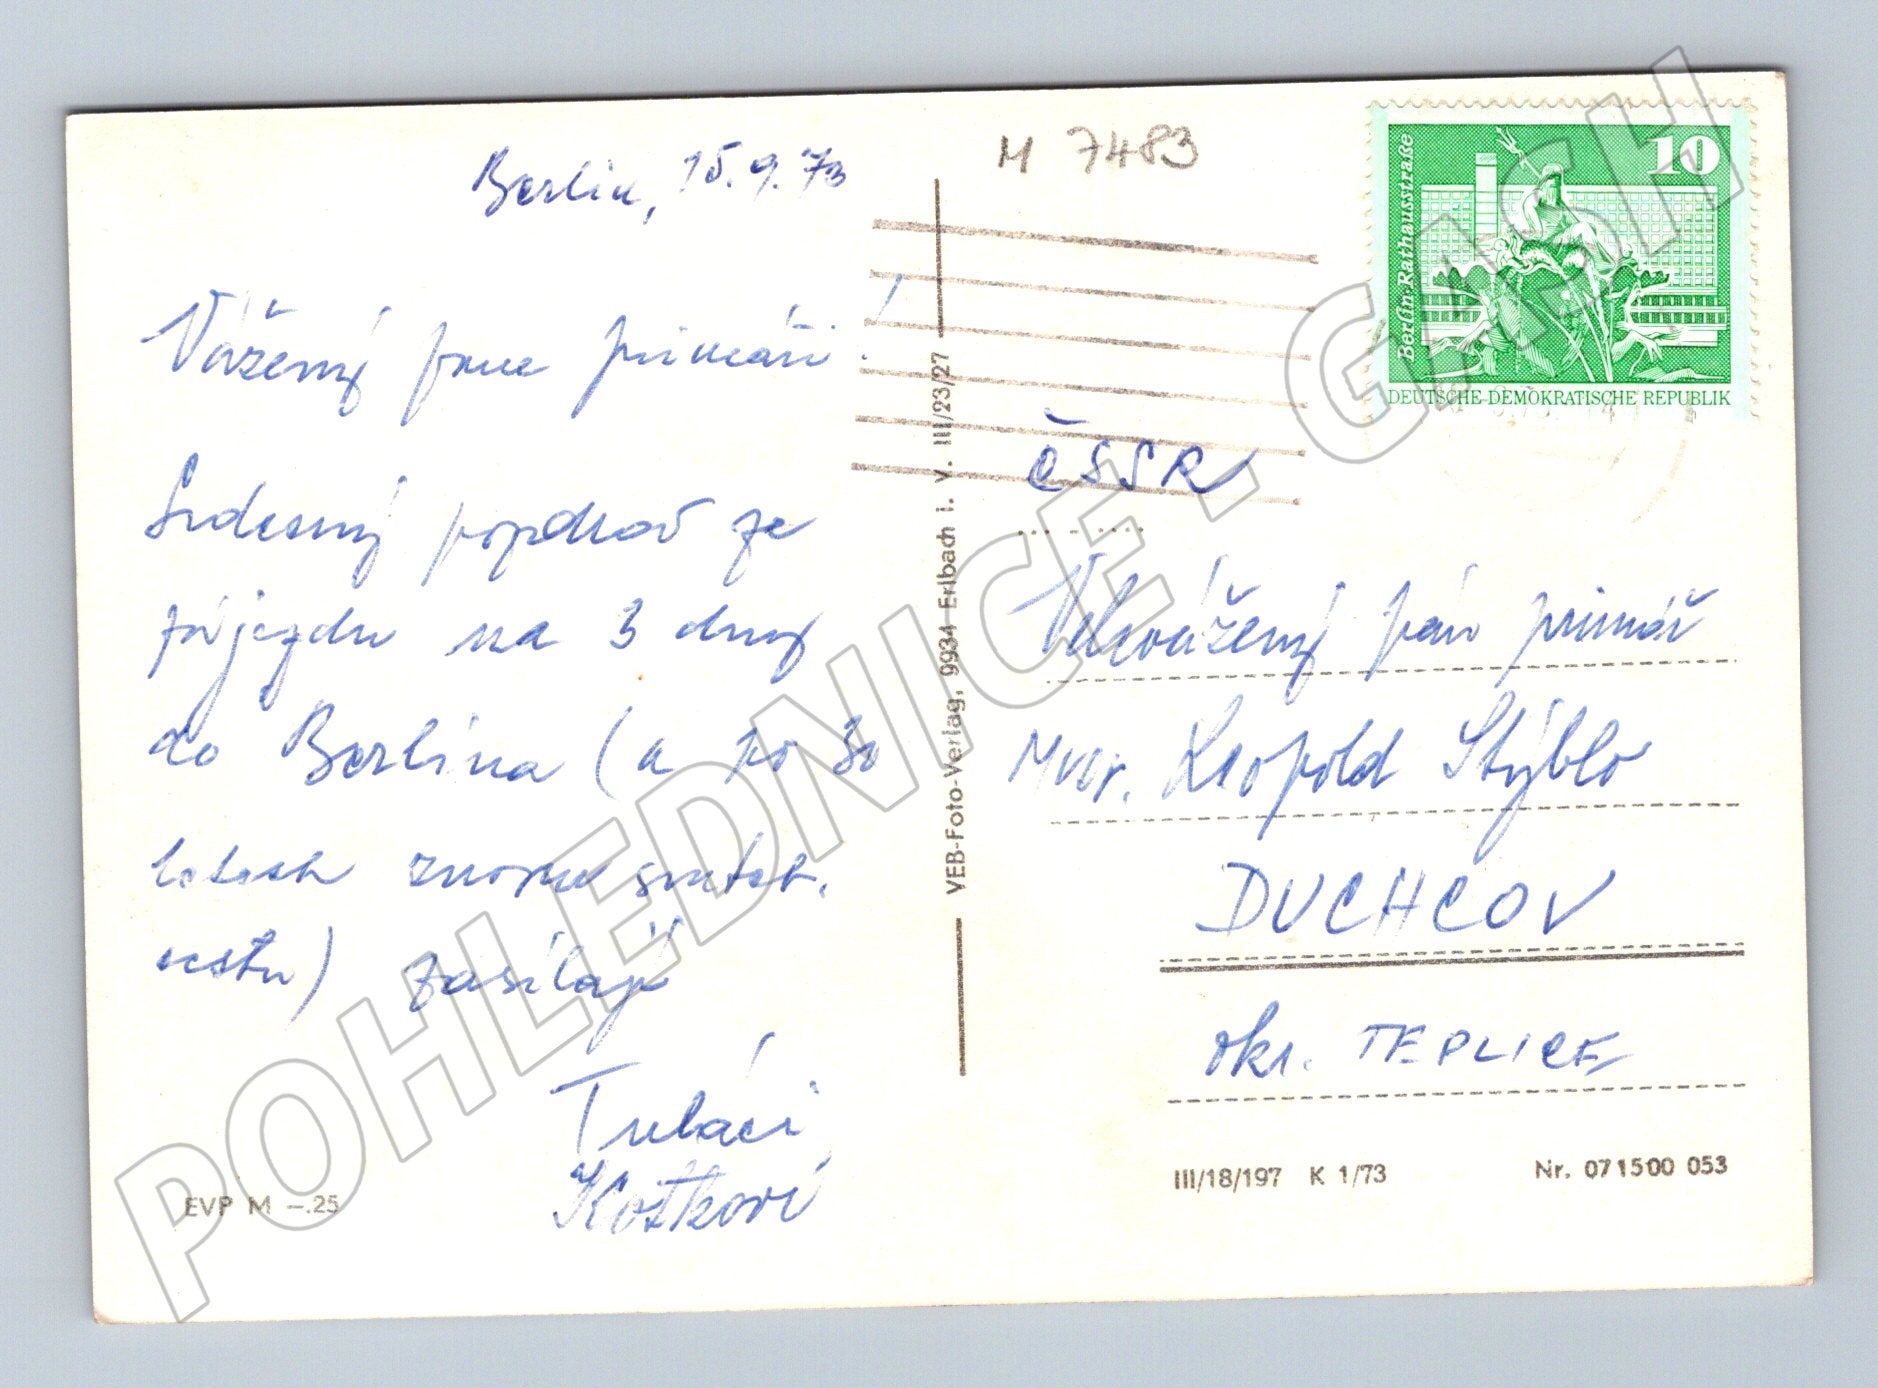 Berlin, 15.9.73
Vážený pane primáři!
Srdečný pozdrav ze
zájezdu na 3 dny
do Berlína (a po 30
letech znovu
) zasílají
Kožkovi
EVP M -.25
VEB-Foto-Verlag, 9934 Erlbach i. V. III/23/27
M 7483
10
Berlin-Rathausstraße
DEUTSCHE DEMOKRATISCHE REPUBLIK
ČSSR
Velevážený pán primář
MUDr. Leopold Stýblo
DUCHCOV
okr. TEPLICE
III/18/197 K 1/73
Nr. 071500 053
POHLEDNICE - GASH